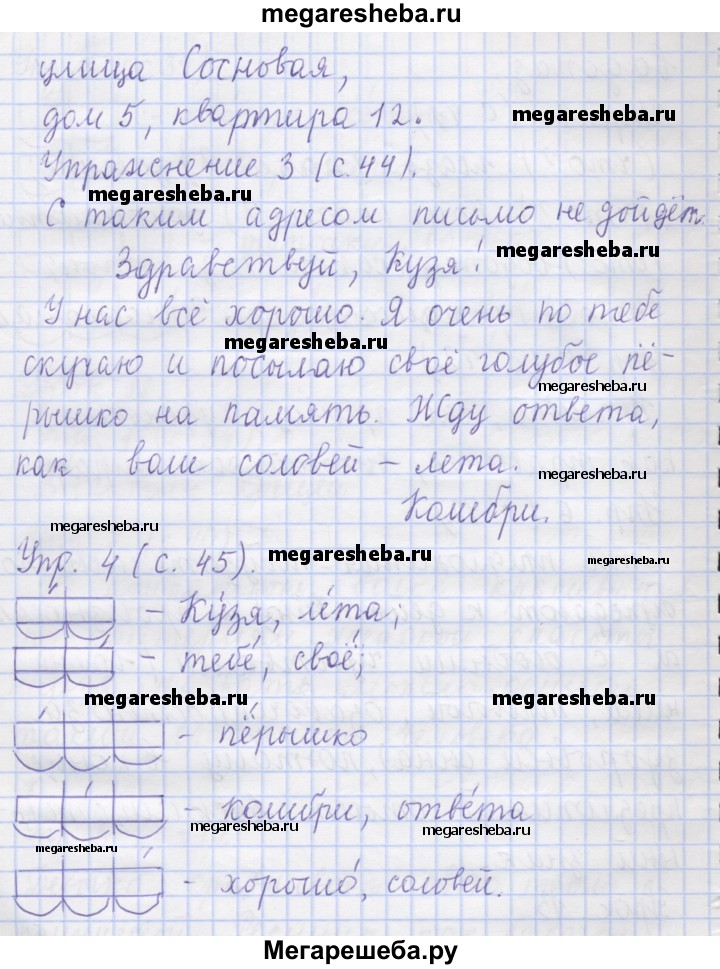 megaresheba.ru
улица Сосновая,
дом 5, квартира 12.
megaresheba.ru
Упражнение 3 (с. 44).
megaresheba.ru
С таким адресом письмо не дойдёт.
Здравствуй, Кузя!
megaresheba.ru
У нас всё хорошо. Я очень по тебе
megaresheba.ru
скучаю и посылаю своё голубое пё-
megaresheba.ru
рышко на память. Жду ответа,
как ваш соловей – лета.
megaresheba.ru
Колибри.
megaresheba.ru
Упр. 4 (с. 45).
megaresheba.ru
megaresheba.ru
– Ку́зя, ле́та;
– тебе́, своё;
megaresheba.ru
megaresheba.ru
– пёрышко
– колибри, отве́та
megaresheba.ru
megaresheba.ru
megaresheba.ru
– хорошо́, соловей.
Мегарешеба.ру